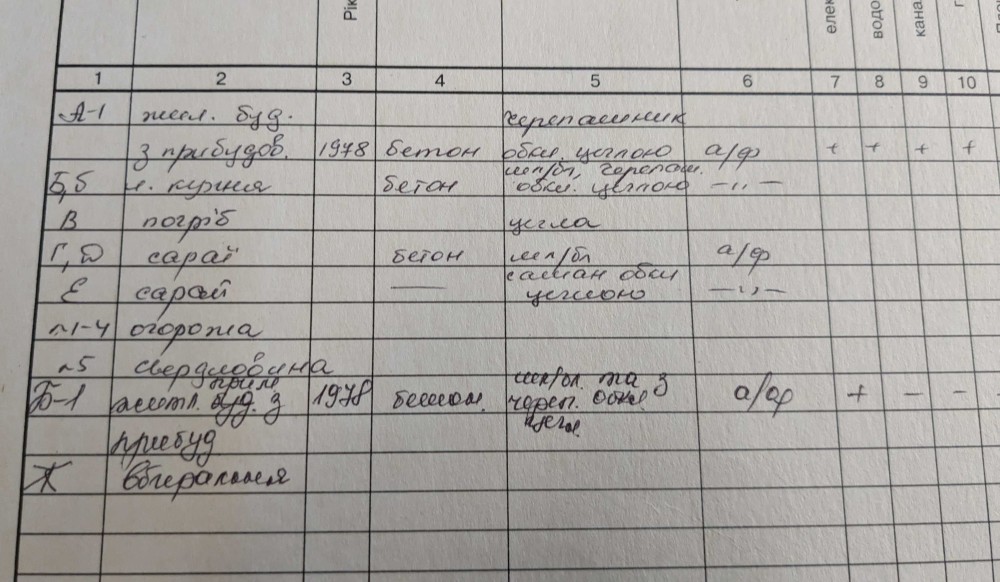 Рік
елек
водо
кана
1 2 3 4 5 6 7 8 9 10
А-1 жил. буд. черепашник
з прибудов. 1978 бетон обкл. цеглою а/ф + + + +
шл/бл, черепаш.
Б,б л. кухня бетон обкл. цеглою —„—
В погріб цегла
Г, Д сарай бетон шл/бл а/ф
саман обкл
Е сарай — цеглою —„—
№1-4 огорожа
№5 свердловина
шл/бл. та з
Б-1 житл. буд. з 1978 бетон. череп. обкл. а/ф + – –
прибуд цегл.
Ж вбиральня